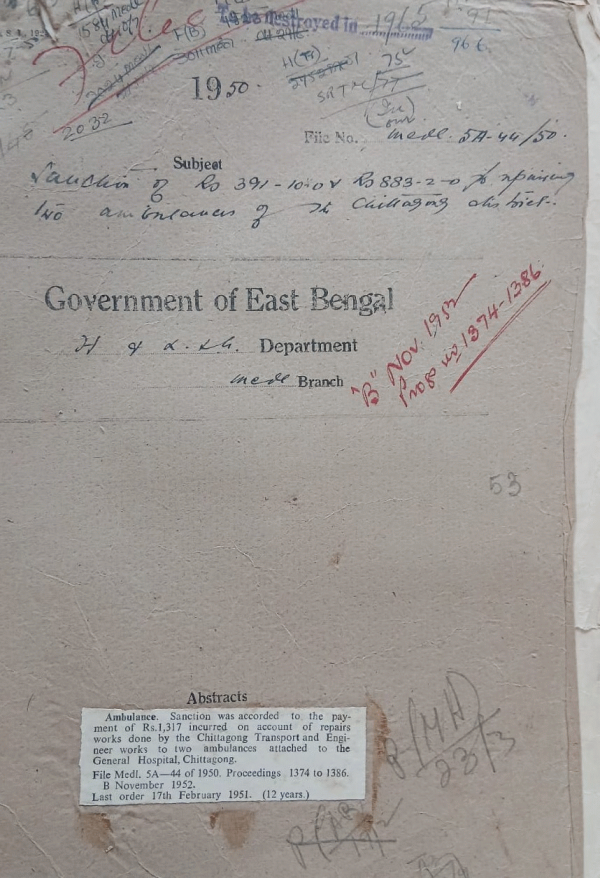 To be destroyed in 1965
966
1950.
2032
File No. Medl. 5A-44/50.
Subject
Sanction of Rs 391-10-0 & Rs 883-2-0 for repairing
two ambulances of the Chittagong district.
Government of East Bengal
H & L. S.G. Department
Medl Branch
"B" Nov. 1952
Progs no 1374-1386
53
Abstracts
Ambulance. Sanction was accorded to the pay-
ment of Rs.1,317 incurred on account of repairs
works done by the Chittagong Transport and Engi-
neer works to two ambulances attached to the
General Hospital, Chittagong.
File Medl. 5A—44 of 1950. Proceedings 1374 to 1386.
B November 1952.
Last order 17th February 1951. (12 years.)
P(MH)
23/3